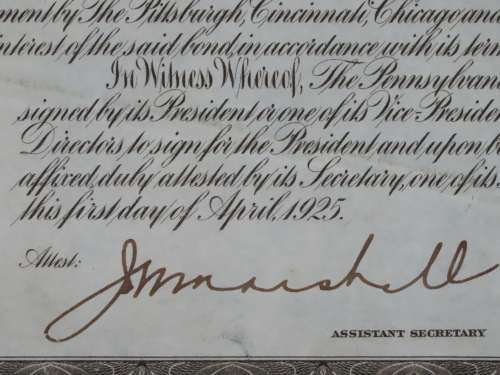 ment by The Pittsburgh, Cincinnati, Chicago and
interest of the said bond, in accordance with its term
In Witness Whereof, The Pennsylvan
signed by its President or one of its Vice-Presiden
Directors to sign for the President and upon be
affixed, duly attested by its Secretary, one of its
this first day of April, 1925.
Attest:
J W Marshall
ASSISTANT SECRETARY